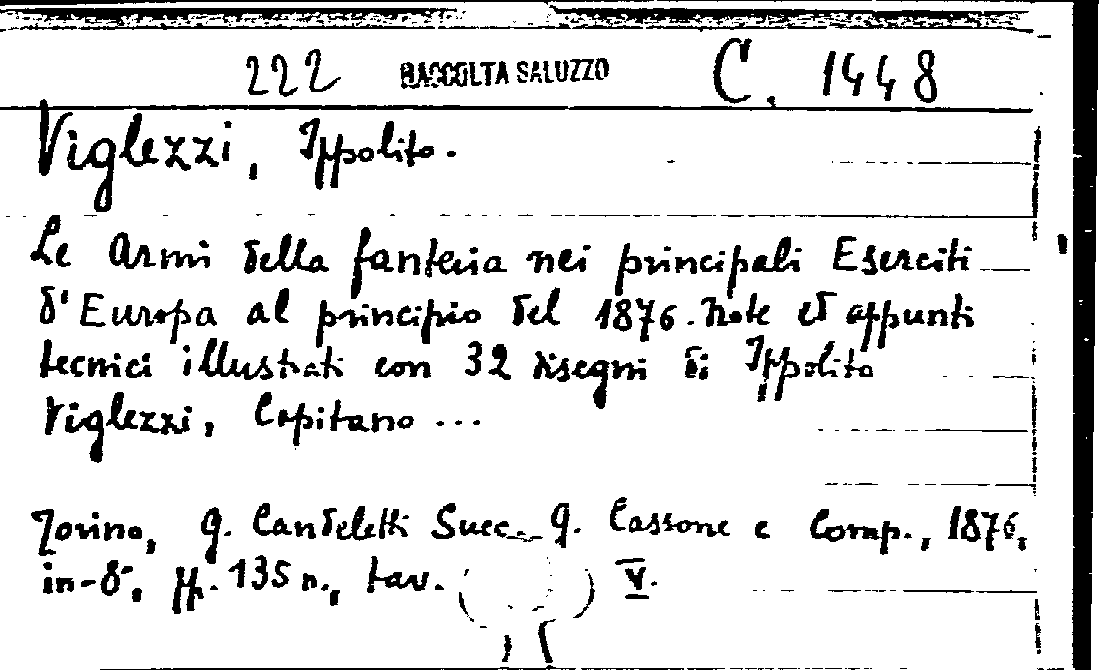 222 RACCOLTA SALUZZO C. 1448
Viglezzi, Ippolito.
Le Armi della fanteria nei principali Eserciti
d'Europa al principio del 1876. Note ed appunti
tecnici illustrati con 32 disegni di Ippolito
Viglezzi, Capitano ...
Torino, G. Candeletti Succ. G. Cassone e Comp., 1876,
in-8°, pp. 135 n., tav. V.